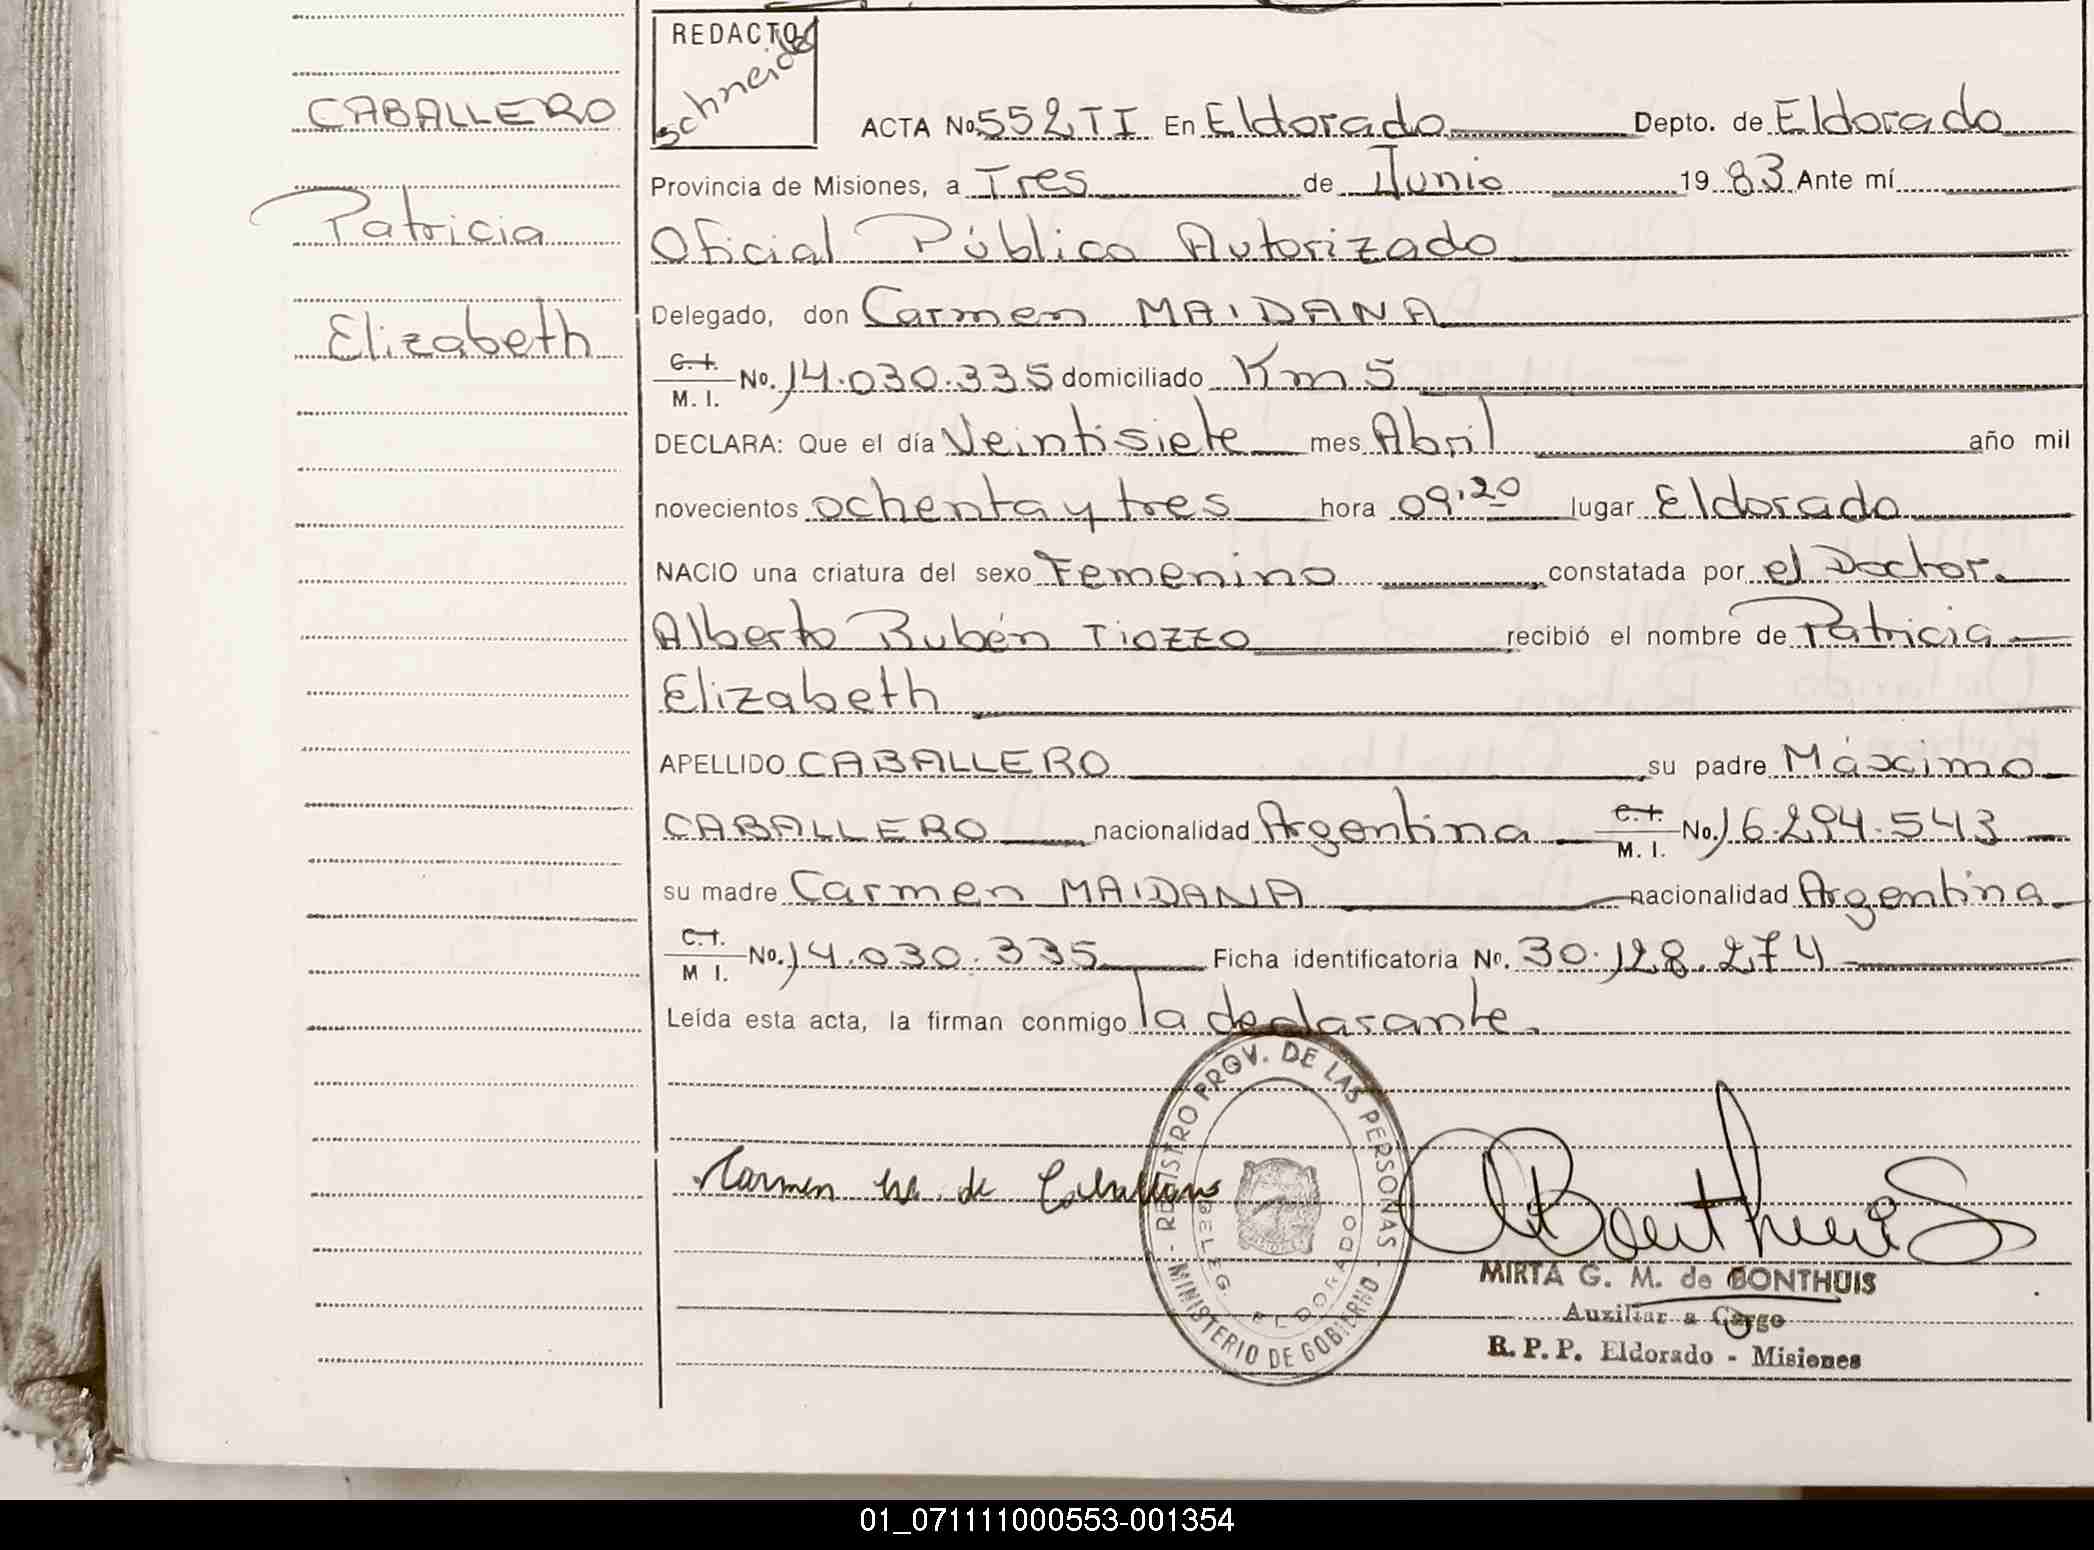 REDACTO
Schneider
CABALLERO
Patricia
Elizabeth
ACTA No. 552 TI En Eldorado Depto. de Eldorado
Provincia de Misiones, a Tres de Junio 1983 Ante mí
Oficial Público Autorizado
Delegado, don Carmen MAIDANA
C.I. M.I. No. 14.030.335 domiciliado Km 5
DECLARA: Que el día Veintisiete mes Abril año mil
novecientos ochenta y tres hora 09,20 lugar Eldorado
NACIO una criatura del sexo Femenino constatada por el Doctor.
Alberto Rubén TIOZZO recibió el nombre de Patricia
Elizabeth
APELLIDO CABALLERO su padre Máximo
CABALLERO nacionalidad Argentina C.I. M.I. No. 16.294.543
su madre Carmen MAIDANA nacionalidad Argentina
C.I. M I. No. 14.030.335 Ficha identificatoria No. 30.128.274
Leída esta acta, la firman conmigo la declarante.
REGISTRO PROV. DE LAS PERSONAS
- MINISTERIO DE GOBIERNO -
DELEG. ELDORADO
Carmen de Caballero
Bonthuis
MIRTA G. M. de BONTHUIS
Auxiliar a Cargo
R. P. P. Eldorado - Misiones
01_071111000553-001354